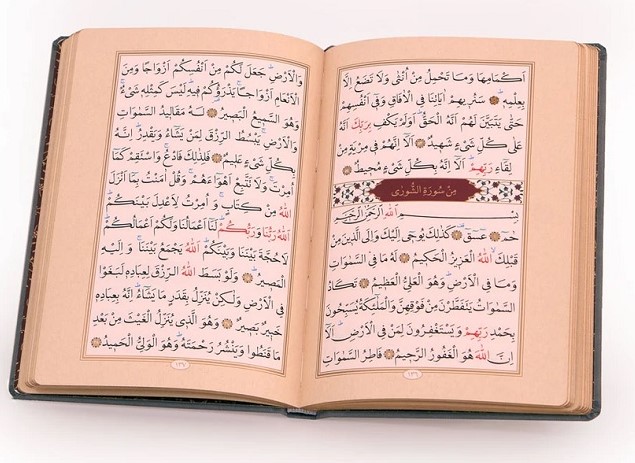 اَكْمَامِهَا وَمَا تَحْمِلُ مِنْ اُنْثٰى وَلَا تَضَعُ اِلَّا
بِعِلْمِهِ ۞ سَنُرِيهِمْ اٰيَاتِنَا فِي الْاٰفَاقِ وَفِي اَنْفُسِهِمْ
حَتّٰى يَتَبَيَّنَ لَهُمْ اَنَّهُ الْحَقُّ اَوَلَمْ يَكْفِ بِرَبِّكَ اَنَّهُ
عَلٰى كُلِّ شَيْءٍ شَهِيدٌ ۞ اَلَا اِنَّهُمْ فِي مِرْيَةٍ مِنْ
لِقَاءِ رَبِّهِمْ اَلَا اِنَّهُ بِكُلِّ شَيْءٍ مُحِيطٌ ۞
مِنْ سُورَةِ الشُّورٰى
بِسْمِ اللهِ الرَّحْمٰنِ الرَّحِيمِ
حٰمٓ ۞ عٓسٓقٓ ۞ كَذٰلِكَ يُوحِي اِلَيْكَ وَاِلَى الَّذِينَ مِنْ
قَبْلِكَ اللهُ الْعَزِيزُ الْحَكِيمُ ۞ لَهُ مَا فِي السَّمٰوَاتِ
وَمَا فِي الْاَرْضِ وَهُوَ الْعَلِيُّ الْعَظِيمُ ۞ تَكَادُ
السَّمٰوَاتُ يَتَفَطَّرْنَ مِنْ فَوْقِهِنَّ وَالْمَلٰئِكَةُ يُسَبِّحُونَ
بِحَمْدِ رَبِّهِمْ وَيَسْتَغْفِرُونَ لِمَنْ فِي الْاَرْضِ اَلَا
اِنَّ اللهَ هُوَ الْغَفُورُ الرَّحِيمُ ۞ فَاطِرُ السَّمٰوَاتِ
١٣٦
وَالْاَرْضِ جَعَلَ لَكُمْ مِنْ اَنْفُسِكُمْ اَزْوَاجًا وَمِنَ
الْاَنْعَامِ اَزْوَاجًا يَذْرَؤُكُمْ فِيهِ لَيْسَ كَمِثْلِهِ شَيْءٌ
وَهُوَ السَّمِيعُ الْبَصِيرُ ۞ لَهُ مَقَالِيدُ السَّمٰوَاتِ
وَالْاَرْضِ يَبْسُطُ الرِّزْقَ لِمَنْ يَشَاءُ وَيَقْدِرُ اِنَّهُ
بِكُلِّ شَيْءٍ عَلِيمٌ ۞ فَلِذٰلِكَ فَادْعُ وَاسْتَقِمْ كَمَا
اُمِرْتَ وَلَا تَتَّبِعْ اَهْوَاءَهُمْ وَقُلْ اٰمَنْتُ بِمَا اَنْزَلَ
اللهُ مِنْ كِتَابٍ وَاُمِرْتُ لِاَعْدِلَ بَيْنَكُمْ
اَللهُ رَبُّنَا وَرَبُّكُمْ لَنَا اَعْمَالُنَا وَلَكُمْ اَعْمَالُكُمْ
لَا حُجَّةَ بَيْنَنَا وَبَيْنَكُمْ اَللهُ يَجْمَعُ بَيْنَنَا وَاِلَيْهِ
الْمَصِيرُ ۞ وَلَوْ بَسَطَ اللهُ الرِّزْقَ لِعِبَادِهِ لَبَغَوْا
فِي الْاَرْضِ وَلٰكِنْ يُنَزِّلُ بِقَدَرٍ مَا يَشَاءُ اِنَّهُ بِعِبَادِهِ
خَبِيرٌ بَصِيرٌ ۞ وَهُوَ الَّذِي يُنَزِّلُ الْغَيْثَ مِنْ بَعْدِ
مَا قَنَطُوا وَيَنْشُرُ رَحْمَتَهُ وَهُوَ الْوَلِيُّ الْحَمِيدُ ۞
١٣٧